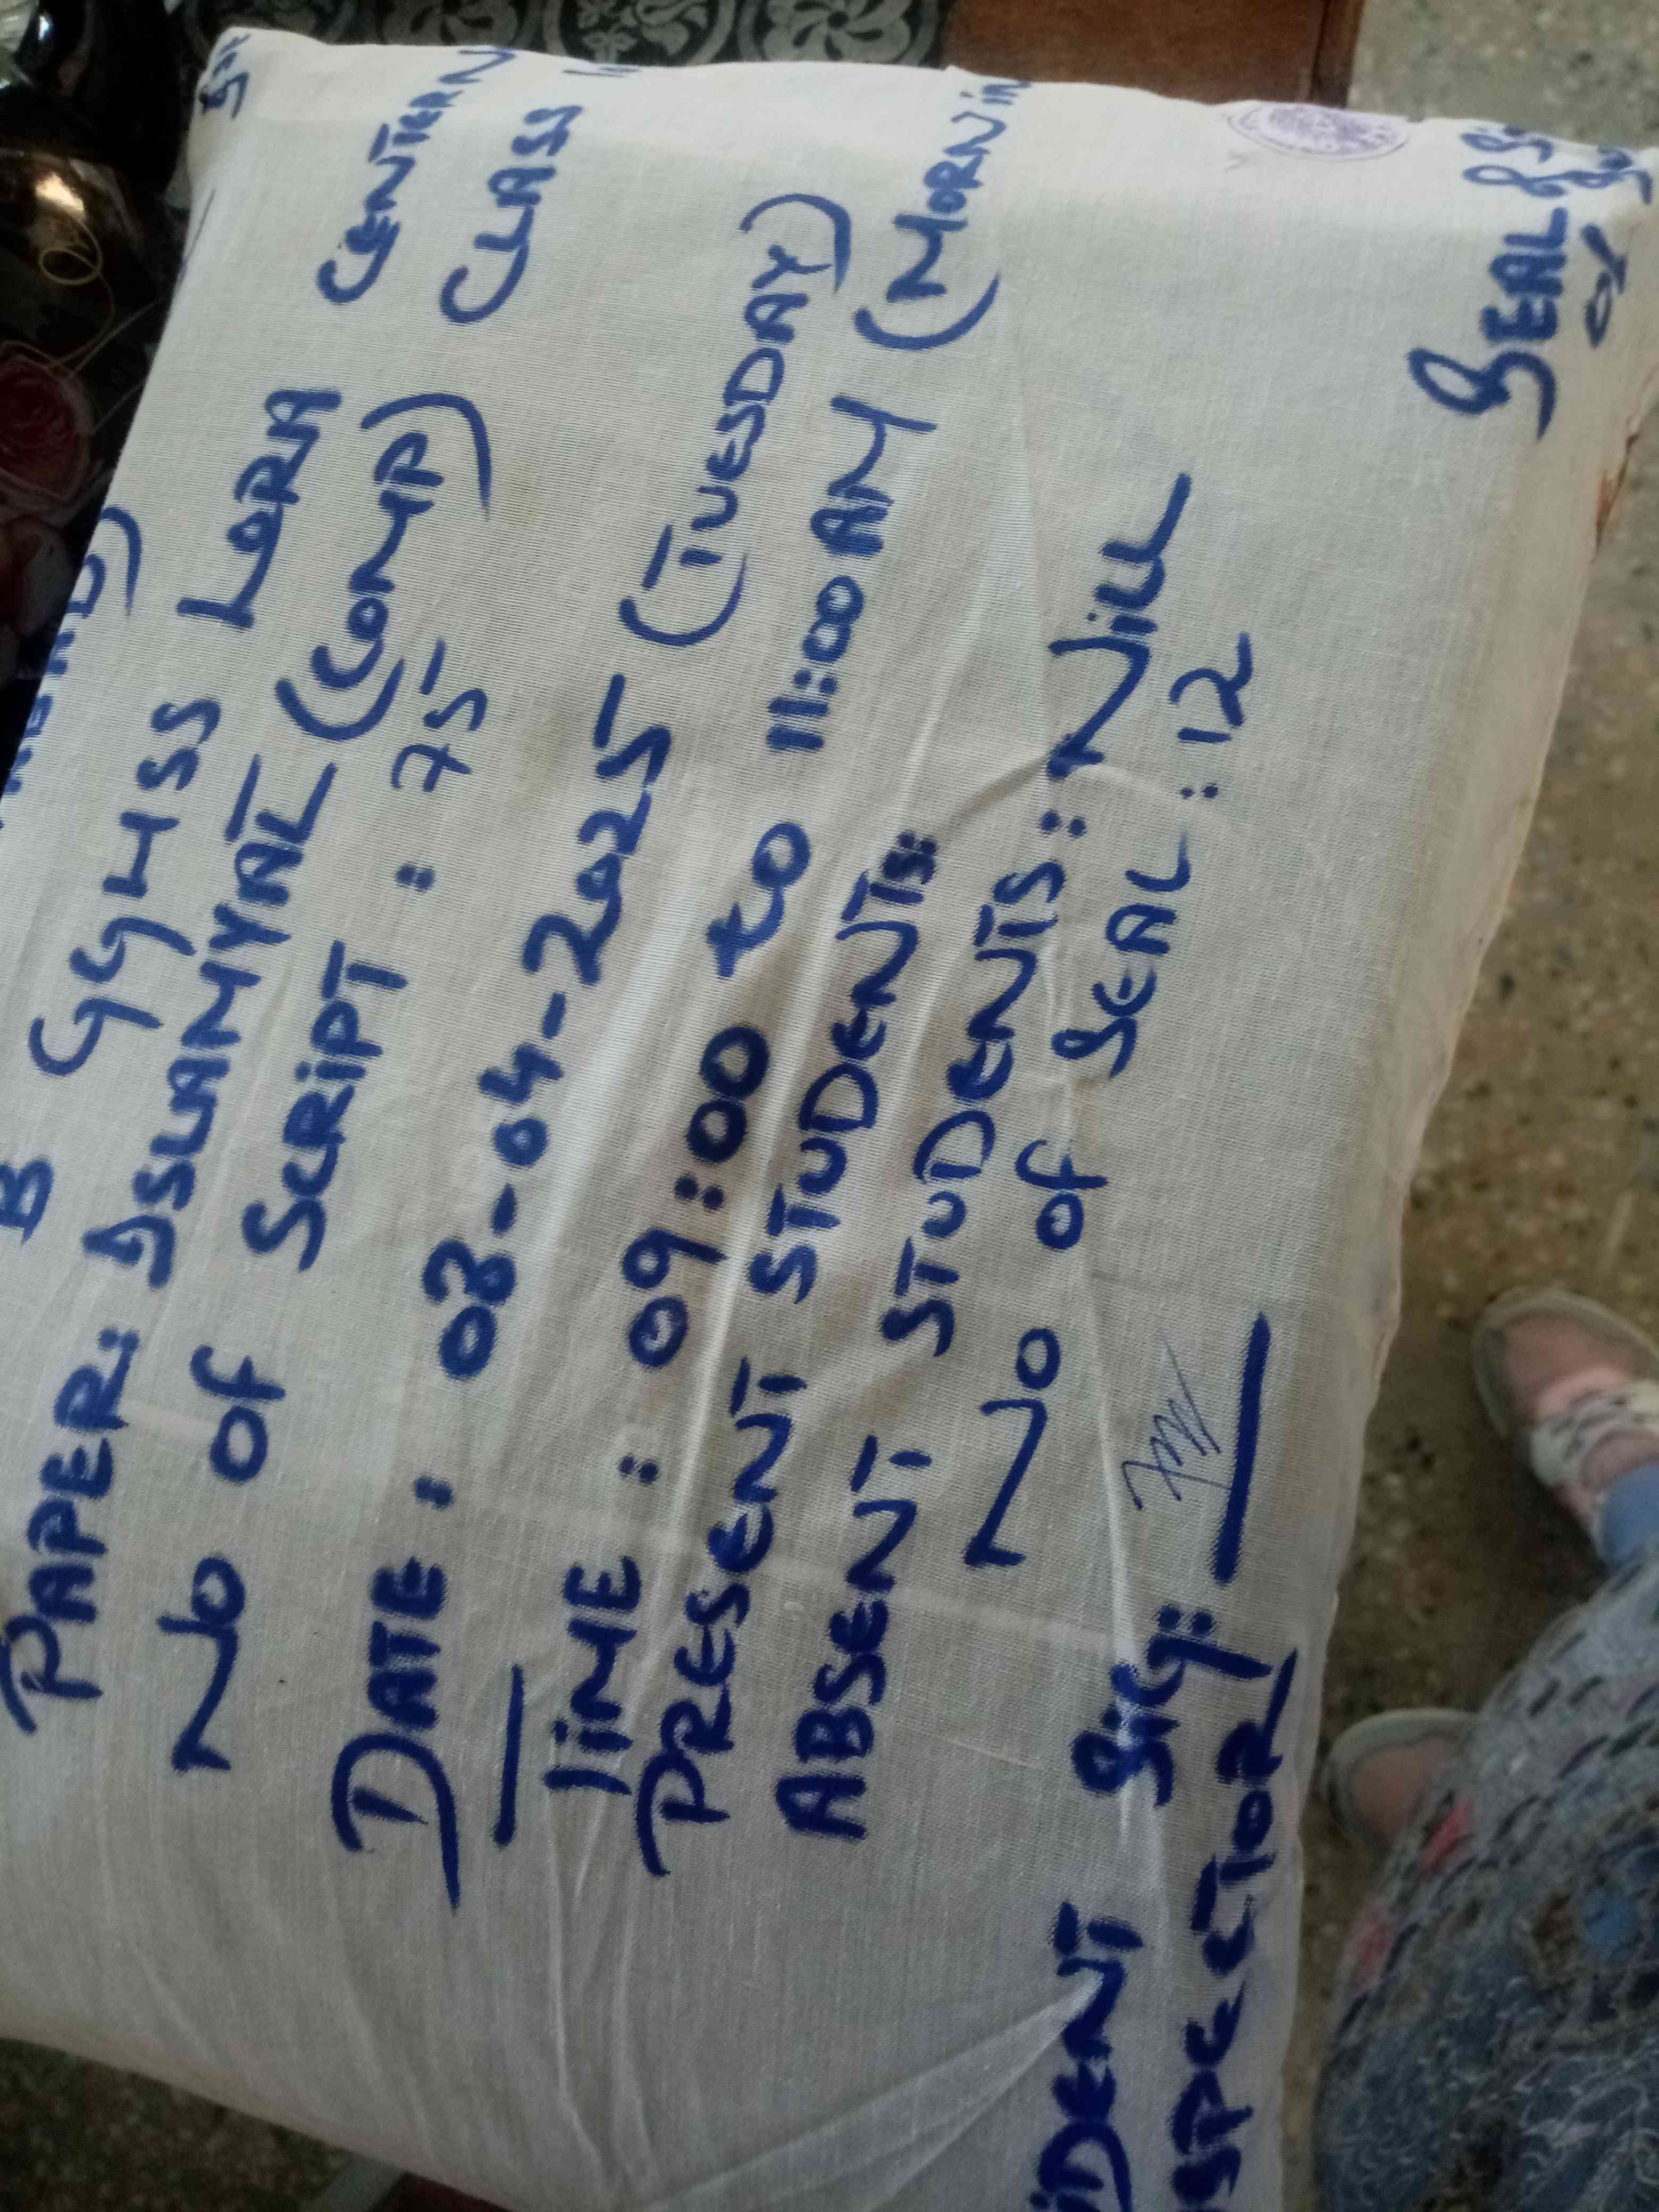 B GGHSS LORA CENTER N
PAPER: ISLAMYAL (COMP) CLASS
No of SCRiPT : 75
DATE : 08-04-2025 (TUESDAY)
TiME : 09:00 to 11:00 AM (MORNiN
PRESENT STUDENTS:
ABSENT STUDENTS: NiLL
No of SEAL : 12
SEAL & Si
of
IDENT SiG:
SPECTIOR